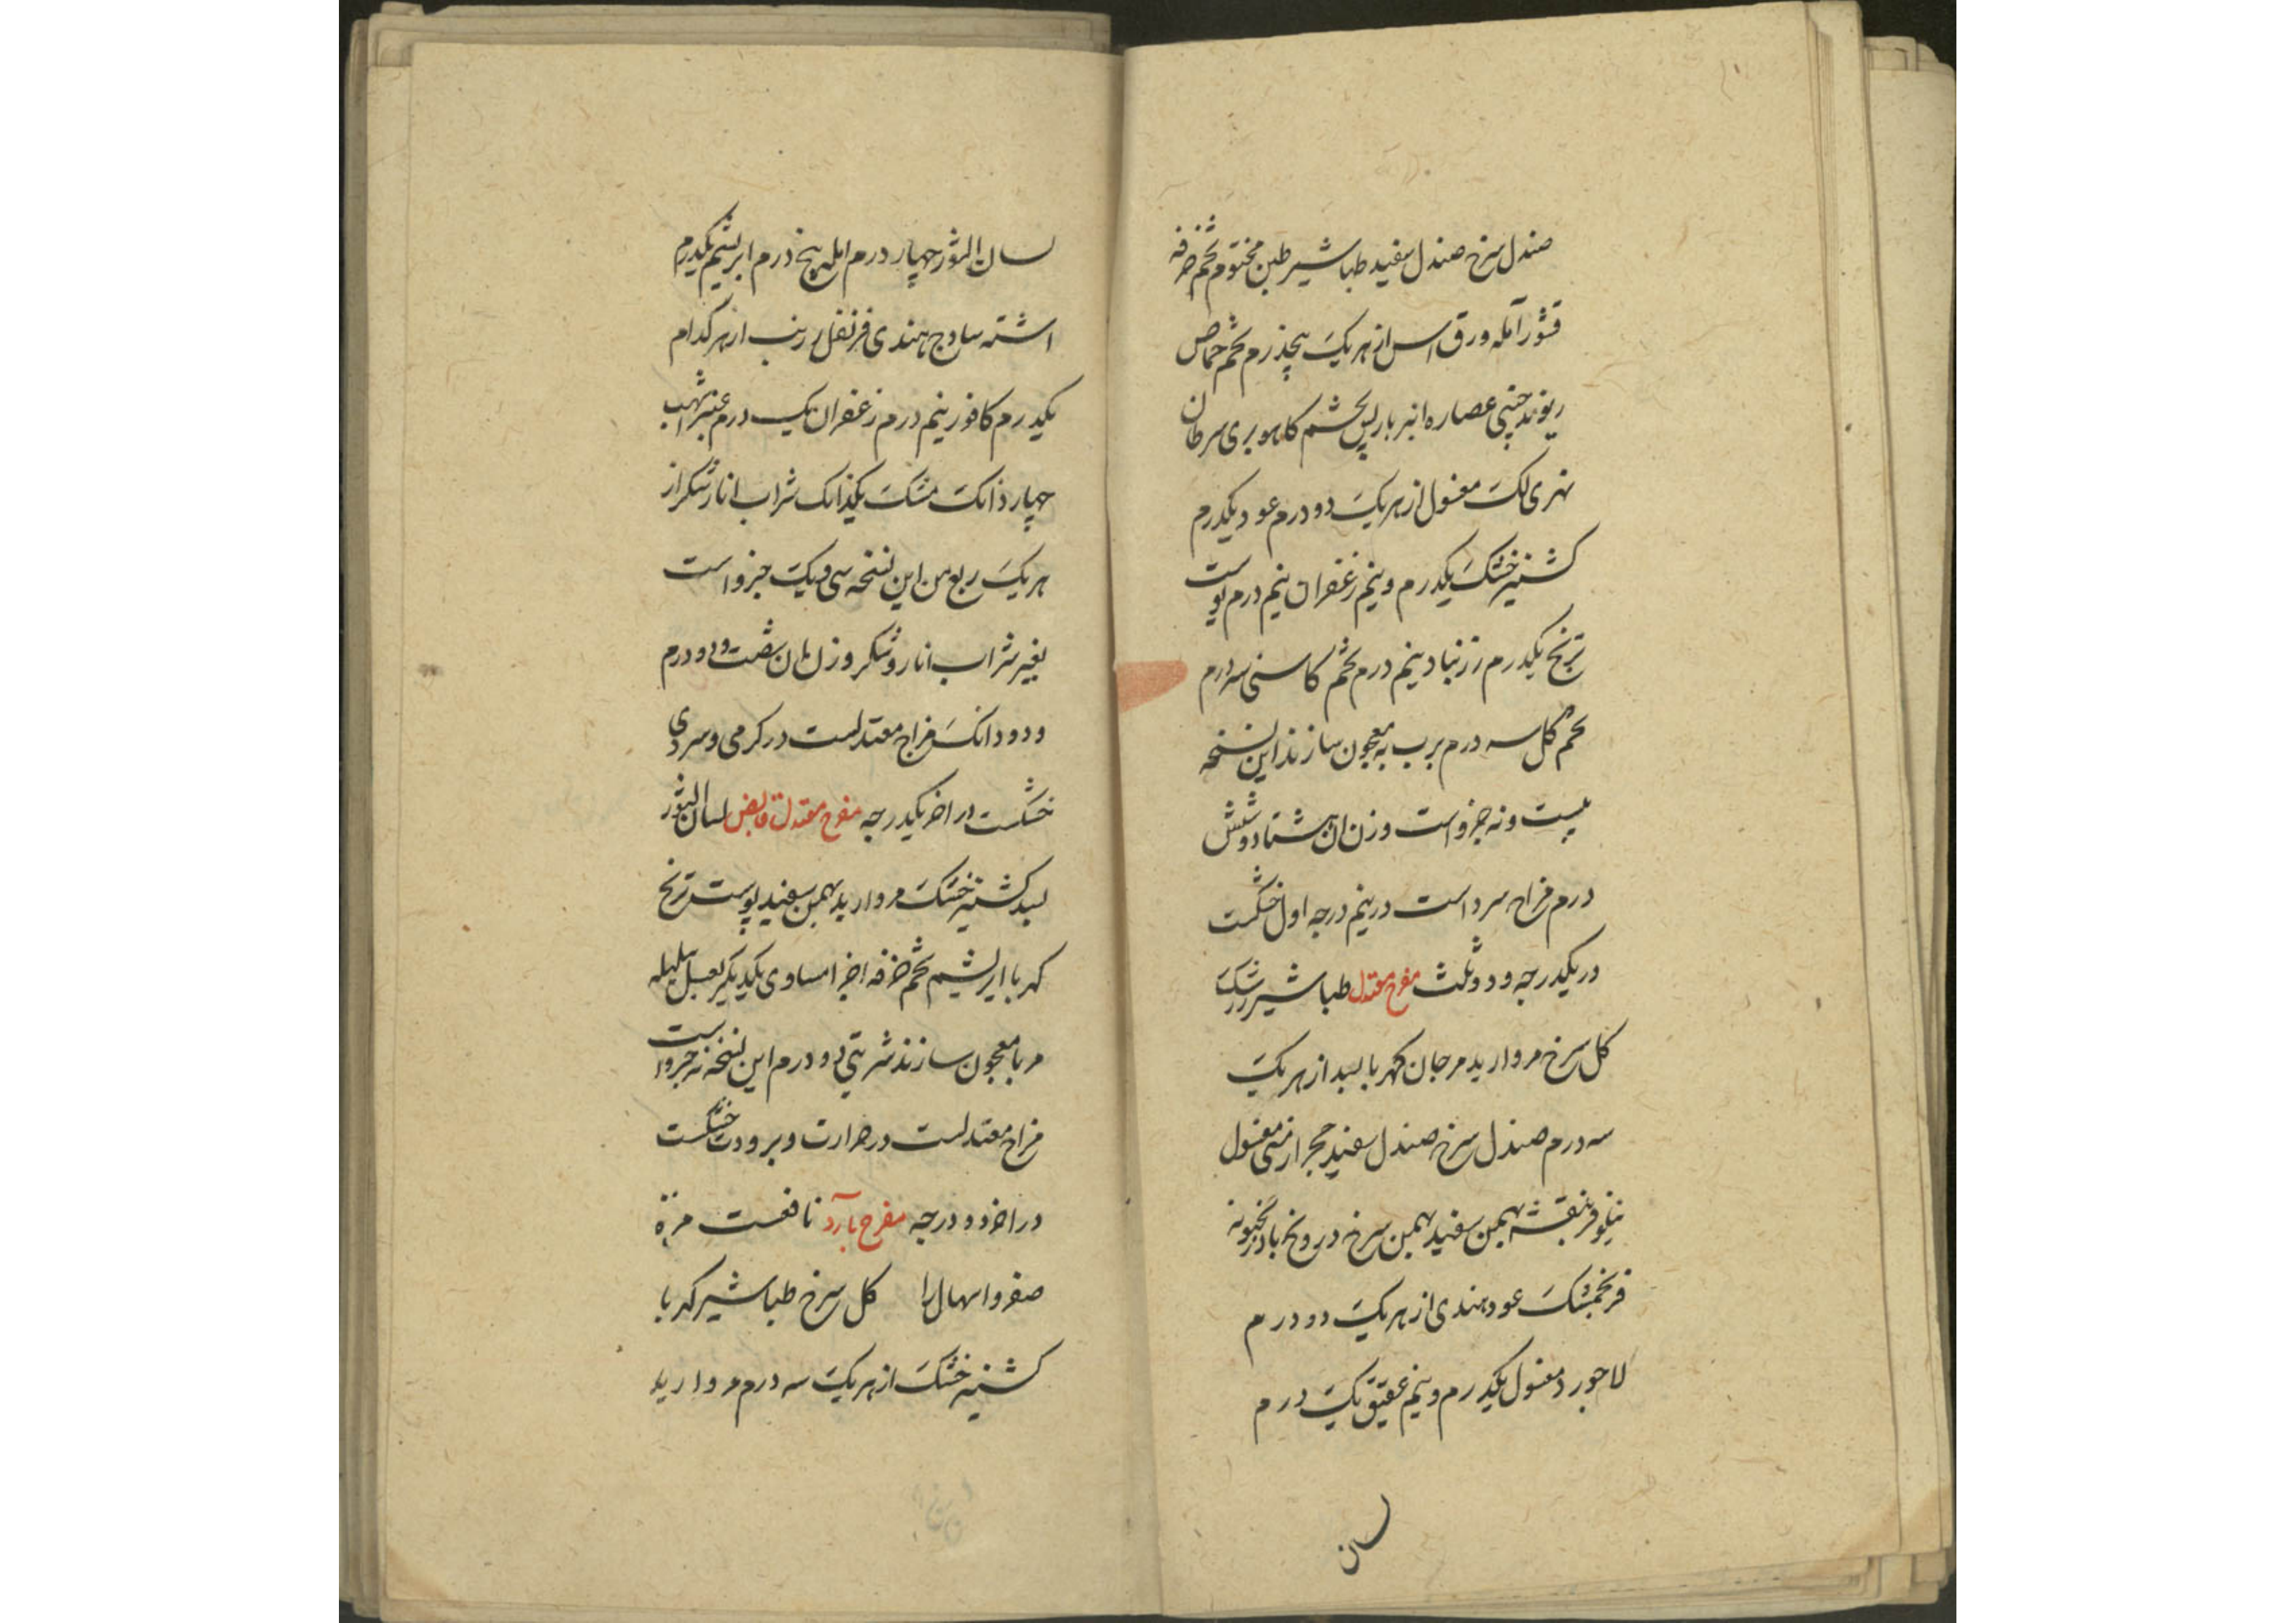 صندل سرخ صندل سفید طباشیر طین مختوم تخم خرفه
قشور آمله ورق اس از هر یک پنجدرم تخم حماض
ریوند چینی عصاره انبرباریس تخم کاهو بری سرطان
نهری لک مغسول از هر یک دو درم عود یکدرم
کشنیز خشک یکدرم و نیم زعفران نیم درم پوست
ترنج یکدرم زرنباد نیم درم تخم کاسنی سه درم
تخم گل سه درم برب به معجون سازند این نسخه
بیست و نه جزو است وزن ان هشتاد و شش
درم مزاج سرد است در نیم درجه اول خشکست
در یکدرجه و دو ثلث مفرح معتدل طباشیر زرشک
کل سرخ مروارید مرجان کهربا بسد از هر یک
سه درم صندل سرخ صندل سفید حجر ارمنی مغسول
نیلوفر بنفشه بهمن سفید بهمن سرخ درونج بادرنجبویه
فرنجمشک عود هندی از هر یک دو درم
لاجورد مغسول یکدرم و نیم عقیق یک درم
لسان
لسان الثور چهار درم امله پنج درم ابریشم یکدرم
اشنه ساذج هندی قرنفل زرنب از هر کدام
یکدرم کافور نیم درم زعفران یک درم عنبر اشهب
چهار دانک مشک یکدانک شراب انار و شکر از
هر یک ربع من این نسخه سی و یک جزو است
بغیر شراب انار و شکر وزن ان شصت و دو درم
و دو دانک مزاج معتدلست در کرمی و سردی
خشکست در اخر یکدرجه مفرح معتدل قابض لسان الثور
بسد کشنیز خشک مروارید بهمن سفید پوست ترنج
کهربا ابریشم تخم خرفه اجزا مساوی یکدیگر بعسل هلیله
مربا معجون سازند شربتی دو درم این نسخه نه جزو است
مزاج معتدلست در حرارت و برودت خشکست
در اخر دو درجه مفرح بارد نافعست مره
صفرو اسهال را کل سرخ طباشیر کهربا
کشنیز خشک از هر یک سه درم مروارید